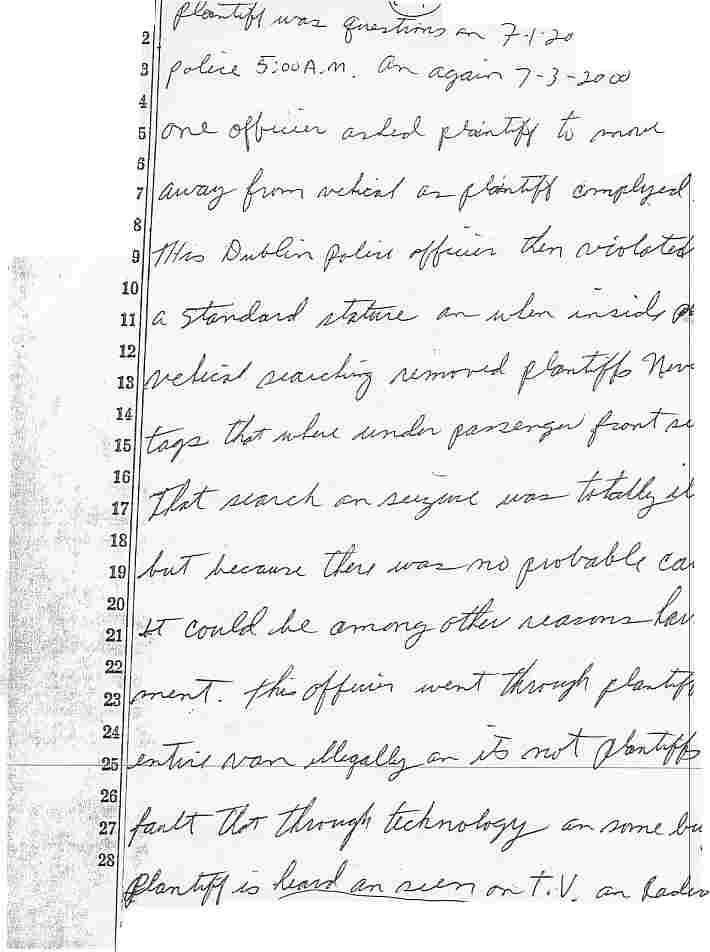 plantiff was questions an 7-1-20
2
police 5:00 A.M. An again 7-3-2000
3
4
5 one officier asked plantiff to move
6
7 away from vehical as plantiff complyed.
8
9 This Dublin police officier then violated
10
11 a standard stature an when inside
12
13 vehical searching removed plantiffs
14
15 tags that where under passenger front
16
17 That search an seizure was totally
18
19 but because there was no probable
20
21 It could be among other reasons
22
23 ment. This officier went through plantiff
24
25 entire van illegally an its not plantiffs
26
27 fault that through technology an some
28
plantiff is heard an seen on T.V. an Radio